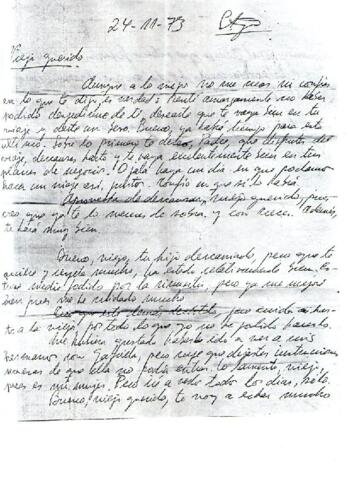 24-11-73 Stgo
Viejo querido
Aunque a lo mejor no me creas ni confíes
en lo que te digo, es verdad: sentí amargamente no haber
podido despedirme de ti, desearte que te vaya bien en tu
viaje y darte un beso. Bueno, ya habrá tiempo para esto
último. Sólo lo primero te deseo, padre, que disfrutes del
viaje, descanses harto y te vaya excelentemente bien en tus
planes de negocio. Ojalá haya un día en que podamos
hacer un viaje así, juntos. Confío en que sí lo habrá.
Aprovecha de descansar, viejo querido, pues
creo que ya te lo mereces de sobra y con creces. Además,
te hará muy bien.
Bueno, viejo, tu hijo descarriado, pero que te
quiere y respeta mucho, ha estado relativamente bien. Es-
tuve medio jodido por la sinusitis, pero ya me mejoré
bien pues me he cuidado mucho.
pero cuida har-
to a la vieja, por todo lo que yo no he podido hacerlo.
Me hubiera gustado haberte ido a ver a mi
hermano con pero supe que dejaste instrucciones
severas de que ella no podía entrar. Lo lamento, viejo,
pues es mi mujer. Pero iré a verlo todos los días, sólo.
Bueno, viejo querido, te voy a echar mucho